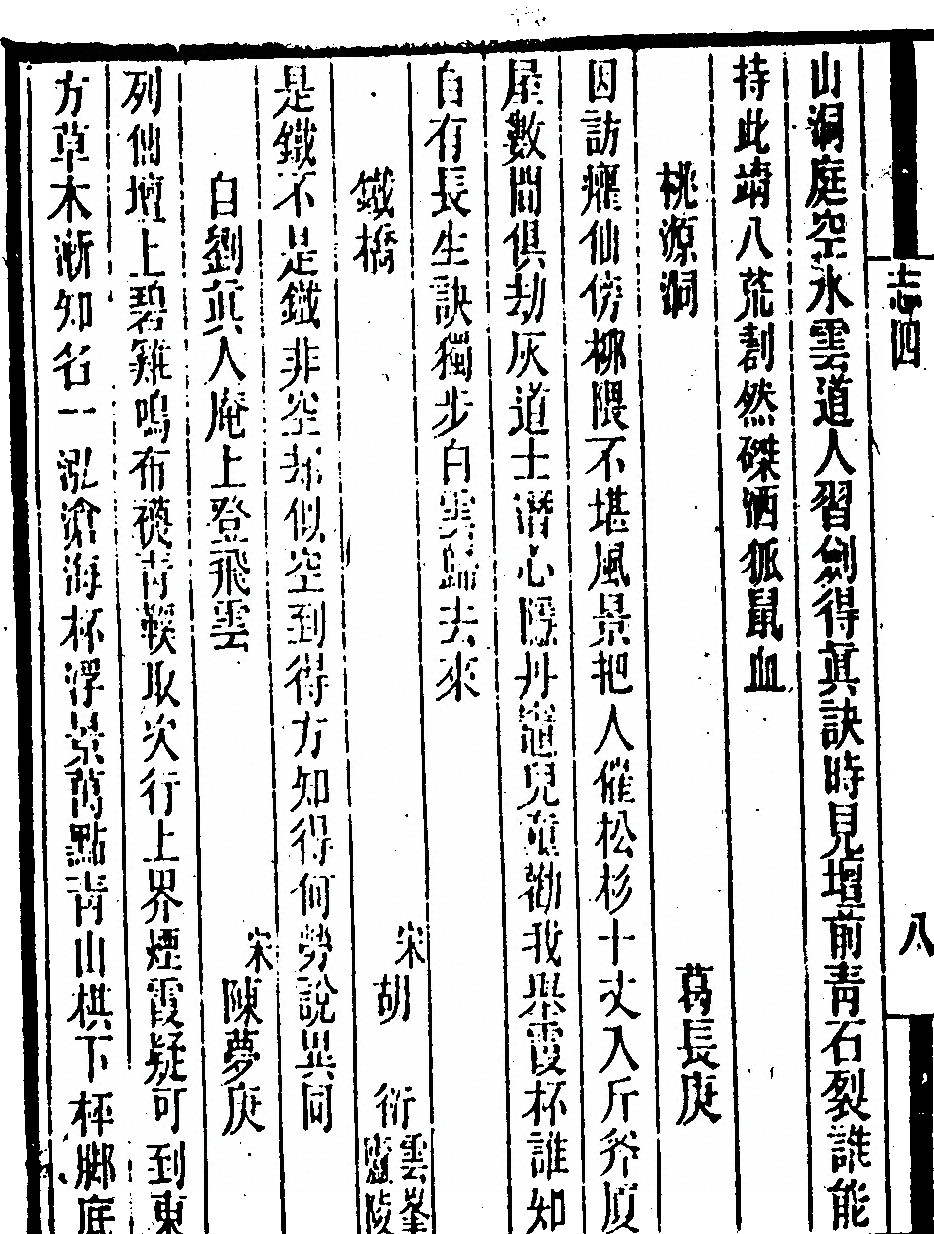 志四
八
山洞庭空水雲道人習劍得眞訣時見壇前靑石裂誰能
持此靖八荒劃然磔洒狐鼠血
桃源洞
葛長庚
因訪癯仙傍柳隈不堪風景把人催松杉十丈入斤斧廈
屋數間俱劫灰道士潛心隱丹竈兒童勸我舉霞杯誰知
自有長生訣獨步白雲歸去來
鐵橋
宋胡 衍雲峯廬陵
是鐵不是鐵非空却似空到得方知得何勞說異同
自劉眞人庵上登飛雲
宋陳夢庚
列仙壇上碧雞鳴布襪靑鞵取次行上界煙霞疑可到東
方草木漸知名一泓滄海杯浮景萬點靑山棋下枰腳底